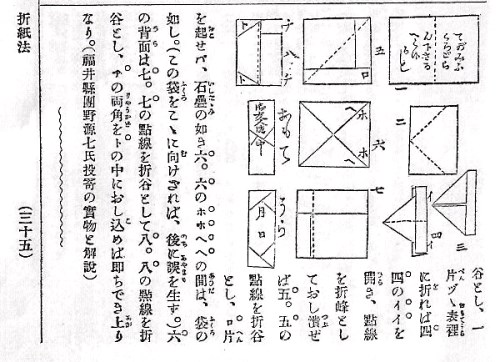 一
二
三
四
イ
イ
五
ロ
六
ホ
ホ
ヘ
ヘ
七
八
チ
ト
ト
おもて
うら
月
日
谷とし、一
片ヅヽ表裡
に折れば四
四のイイを
開き、點線
を折峰とし
ておし潰せ
ば五。五の
點線を折谷
とし、ロ片
を起せバ、石疊の如き六。六のホホヘヘの間は、袋の
如し。(この袋をこゝに向けされば、後に誤を生ず。)六
の背面は七。七の點線を折谷として八。八の點線を折
谷とし、チの両角をトの中におし込めば即ちでき上り
なり。(福井縣團野源七氏投寄の實物と解說)
折紙法
(三十五)